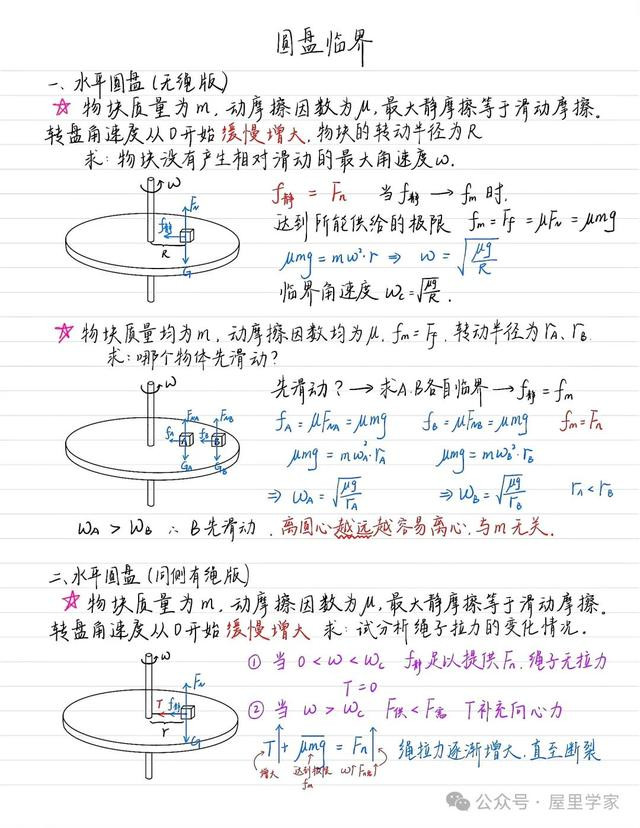 圆盘临界
一、水平圆盘(无绳版)
☆ 物块质量为m,动摩擦因数为μ,最大静摩擦等于滑动摩擦。
转盘角速度从0开始缓慢增大,物块的转动半径为R
求:物块没有产生相对滑动的最大角速度ω.
f静 = Fn 当f静 → fm 时.
达到所能供给的极限 fm = Ff = μFN = μmg
μmg = mω²·r ⇒ ω = √(μg/R)
临界角速度 ωc = √(μg/R).
ω
FN
f静
R
G
☆ 物块质量均为m,动摩擦因数均为μ. fm = Ff. 转动半径为rA、rB.
求:哪个物体先滑动?
先滑动? → 求A.B各自临界 → f静 = fm
fA = μFNA = μmg fB = μFNB = μmg fm = Fn
μmg = mωA²·rA μmg = mωB²·rB
⇒ ωA = √(μg/rA) ⇒ ωB = √(μg/rB) rA < rB
ω
FNA FNB
fA A fB B
GA GB
ωA > ωB ∴ B先滑动. 离圆心越远越容易离心,与m无关.
二、水平圆盘(同侧有绳版)
☆ 物块质量为m,动摩擦因数为μ,最大静摩擦等于滑动摩擦。
转盘角速度从0开始缓慢增大 求:试分析绳子拉力的变化情况.
① 当 0 < ω < ωc f静足以提供Fn,绳子无拉力
T = 0
② 当 ω > ωc F供 < F需 T补充向心力
T + μmg = Fn 绳拉力逐渐增大,直至断裂
增大 达到极限 ω↑Fn↑
fm
ω
FN
T f静
r
G
公众号 · 屋里学家